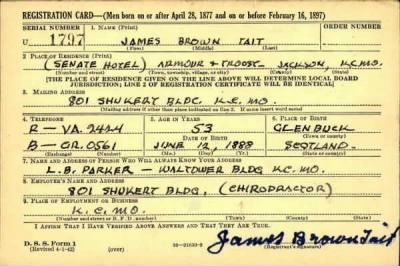 REGISTRATION CARD—(Men born on or after April 28, 1877 and on or before February 16, 1897)
SERIAL NUMBER 1. NAME (Print) ORDER NUMBER
U 1797 JAMES BROWN TAIT
(First) (Middle) (Last)
2. PLACE OF RESIDENCE (Print)
(SENATE HOTEL) ARMOUR & TROOST- JACKSON, K.C. MO.
(Number and street) (Town, township, village, or city) (County) (State)
[THE PLACE OF RESIDENCE GIVEN ON THE LINE ABOVE WILL DETERMINE LOCAL BOARD
JURISDICTION; LINE 2 OF REGISTRATION CERTIFICATE WILL BE IDENTICAL]
3. MAILING ADDRESS
801 SHUKERT BLDG. K.C. MO.
[Mailing address if other than place indicated on line 2. If same insert word same]
4. TELEPHONE 5. AGE IN YEARS 6. PLACE OF BIRTH
R - VA. 2424 53 GLENBUCK
DATE OF BIRTH (Town or county)
B - GR. 0561 JUNE 12, 1888 SCOTLAND
(Exchange) (Number) (Mo.) (Day) (Yr.) (State or country)
7. NAME AND ADDRESS OF PERSON WHO WILL ALWAYS KNOW YOUR ADDRESS
L.B. PARKER - WALTOWER BLDG K.C. MO.
8. EMPLOYER'S NAME AND ADDRESS
801 SHUKERT BLDG. (CHIROPRACTOR)
9. PLACE OF EMPLOYMENT OR BUSINESS
K. C. MO.
(Number and street or R. F. D. number) (Town) (County) (State)
I AFFIRM THAT I HAVE VERIFIED ABOVE ANSWERS AND THAT THEY ARE TRUE.
D. S. S. Form 1
(Revised 4-1-42) (over) 16-21630-2 James Brown Tait
(Registrant's signature)